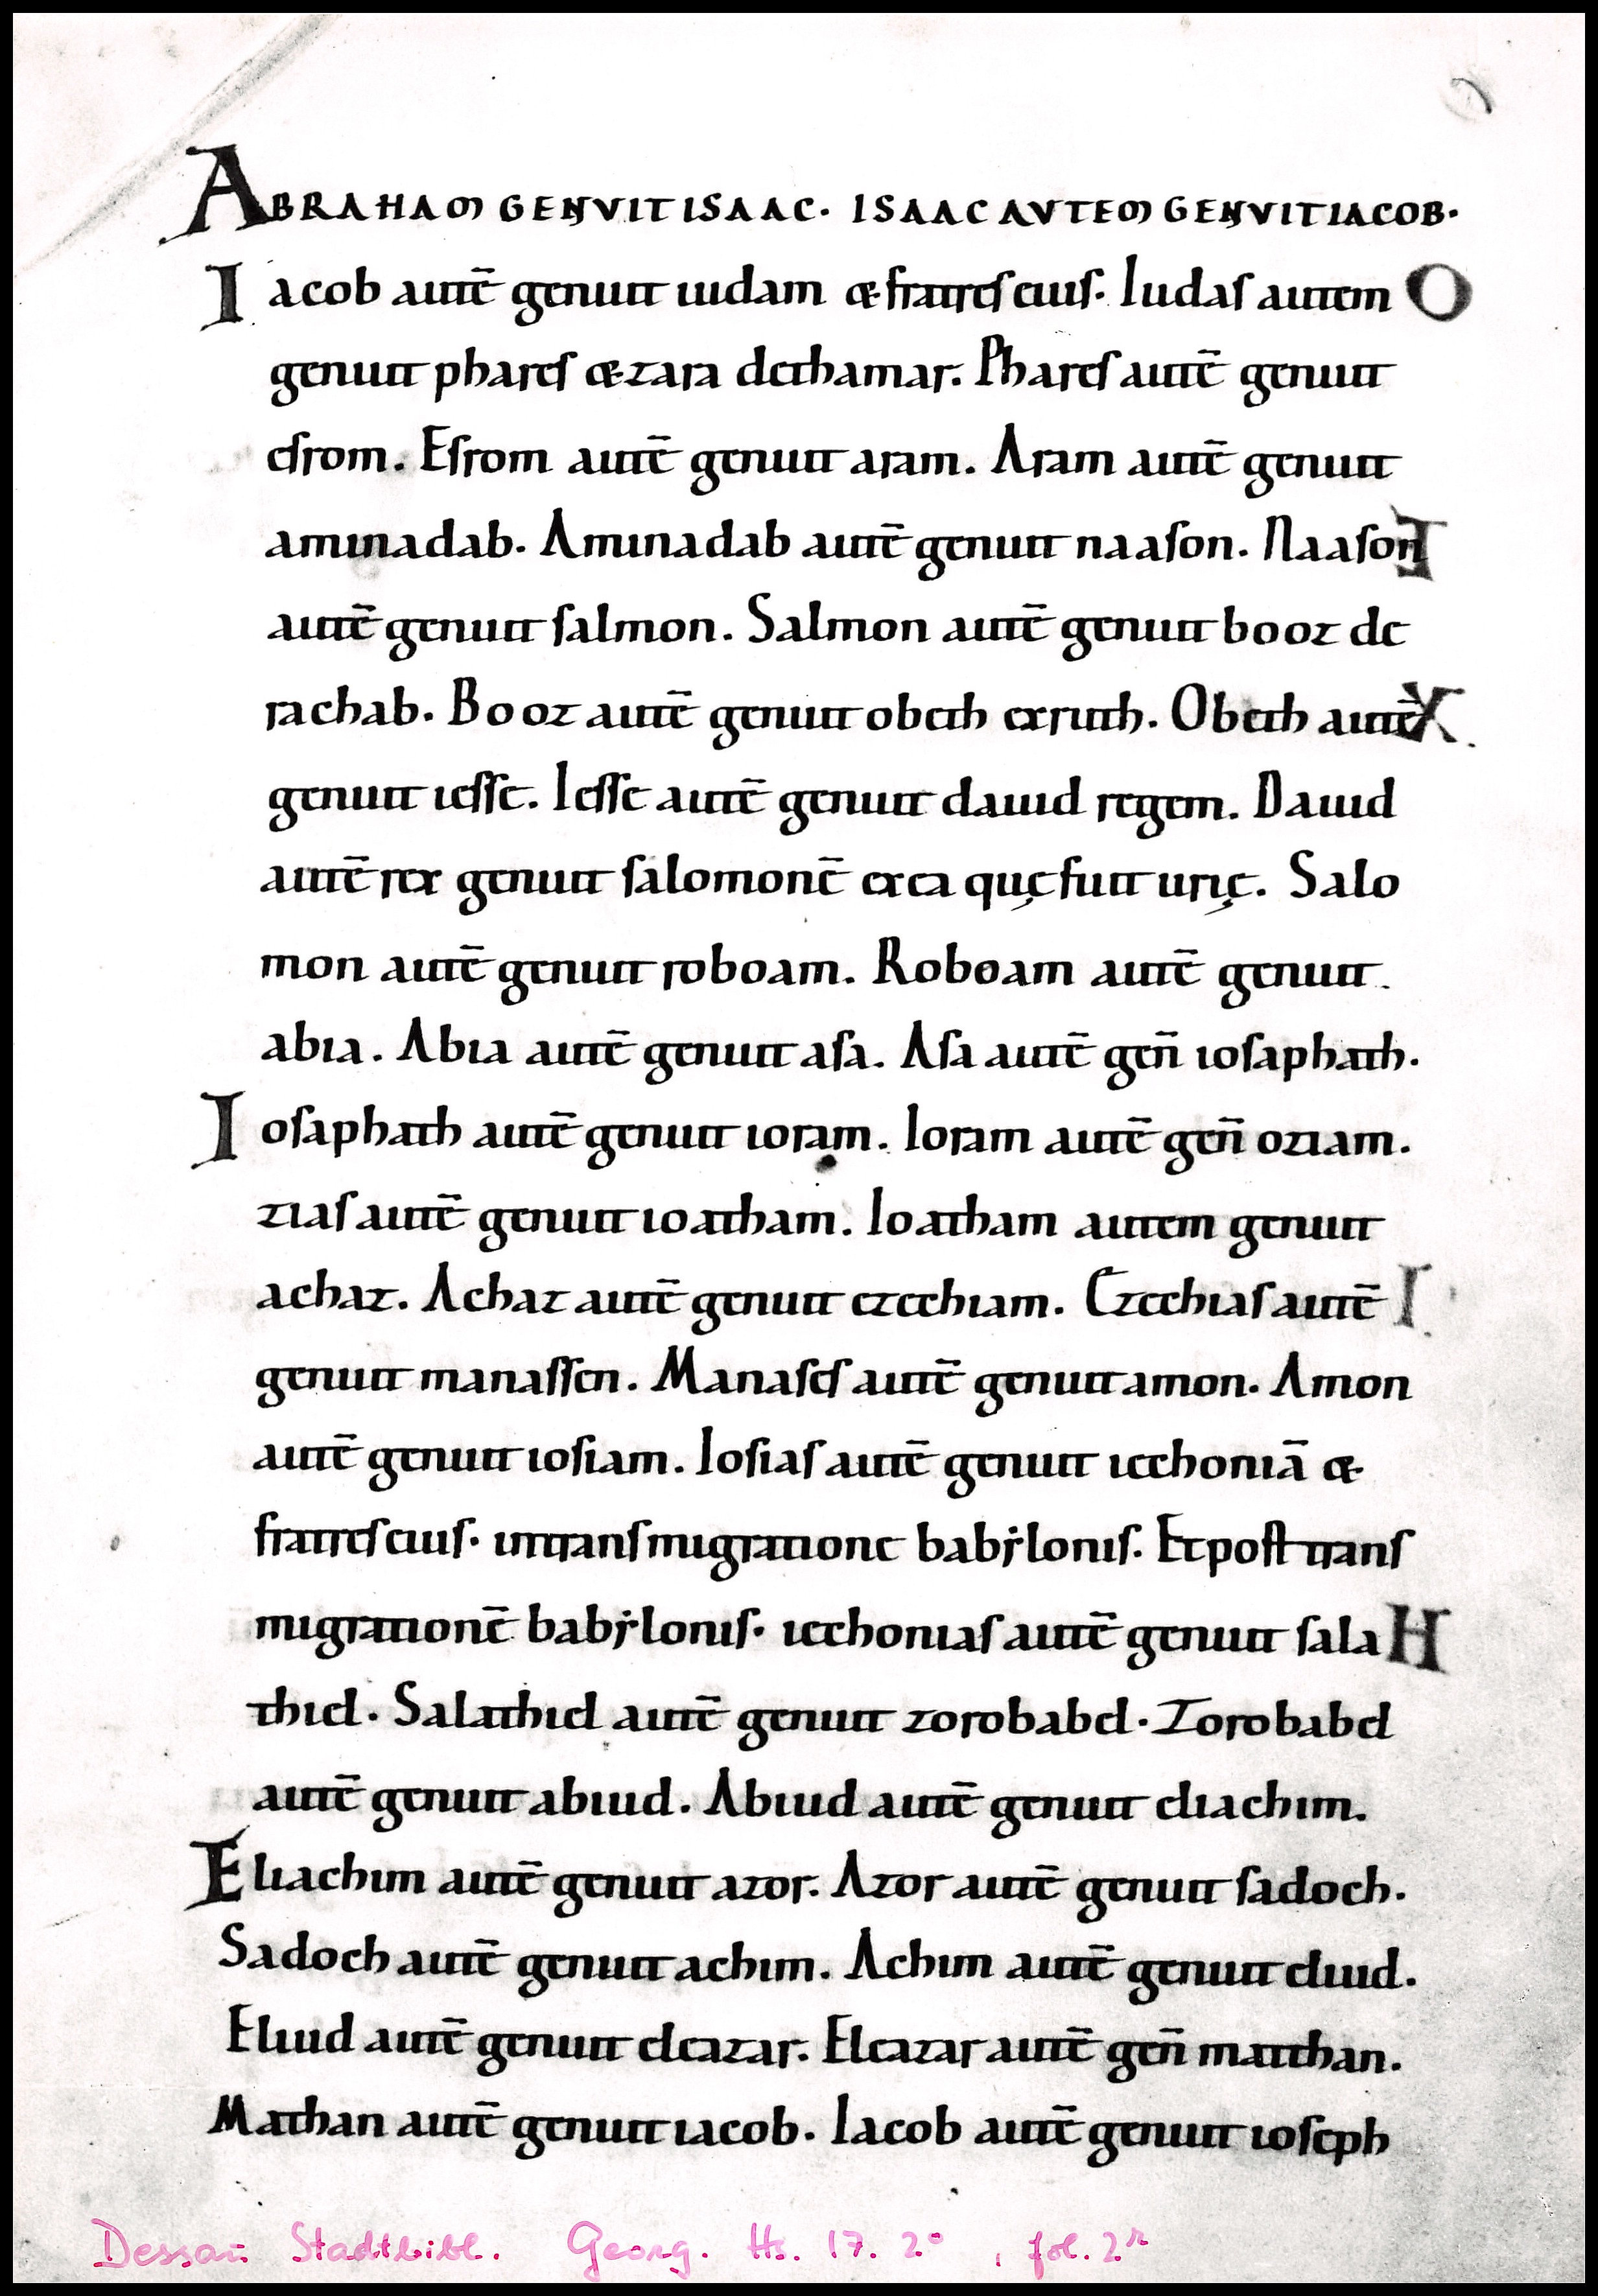 ABRAHAM GENVIT ISAAC. ISAAC AVTEM GENVIT IACOB.
Iacob autē genuit iudam & fratres eius. Iudas autem O
genuit phares & zara dethamar. Phares autē genuit
esrom. Esrom autē genuit aram. Aram autē genuit
aminadab. Aminadab autē genuit naason. Naason
autē genuit salmon. Salmon autē genuit booz de
rachab. Booz autē genuit obeth exruth. Obeth autē
genuit iesse. Iesse autē genuit dauid regem. Dauid
autē rex genuit salomonē exea quę fuit urię. Salo
mon autē genuit roboam. Roboam autē genuit
abia. Abia autē genuit asa. Asa autē geñ iosaphath.
Iosaphath autē genuit ioram. Ioram autē geñ oziam.
zias autē genuit ioatham. Ioatham autem genuit
achaz. Achaz autē genuit ezechiam. Ezechias autē I
genuit manassen. Manases autē genuit amon. Amon
autē genuit iosiam. Iosias autē genuit iechoniā &
fratres eius. intransmigratione babẏlonis. Et post trans
migrationē babẏlonis. iechonias autē genuit sala H
thiel. Salathiel autē genuit zorobabel. Zorobabel
autē genuit abiud. Abiud autē genuit eliachim.
Eliachim autē genuit azor. Azor autē genuit sadoch.
Sadoch autē genuit achim. Achim autē genuit eliud.
Eliud autē genuit eleazar. Eleazar autē geñ matthan.
Mathan autē genuit iacob. Iacob autē genuit ioseph
Dessau Stadtbibl. Georg. Hs. 17. 2° , fol. 2r